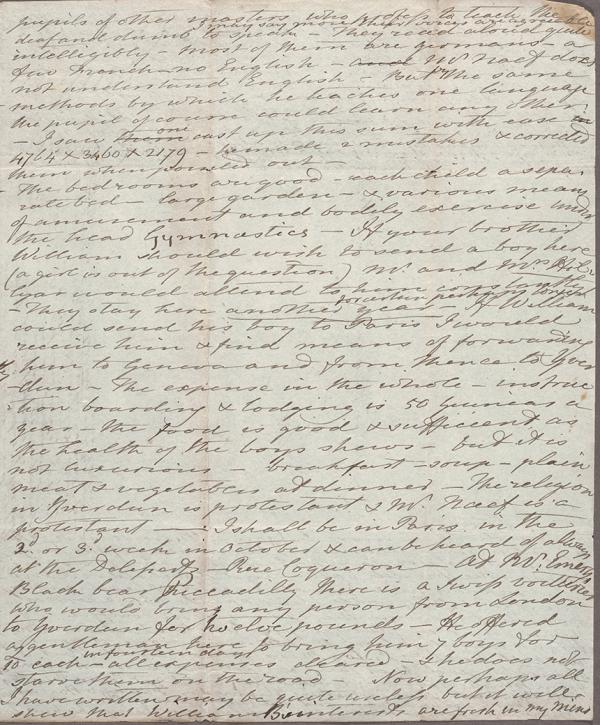 pupils of other masters who profess to teach the
deaf and dumb to speak - They read aloud quite
intelligibly - most of them are germans - a
few French - no English - Mr. Naef does
not understand English - But the same
methods by which he teaches one language
the pupil of course could learn any other
- I saw one cast up this sum with ease
4764 X 3460 X 2179 - he made 2 mistakes & corrected
them when pointed out -
- The bedrooms are good - each child a sepa
rate bed - large garden - & various means
of amusement and bodily exercise under
the head Gymnastics - If your brother
William should wish to send a boy here
(a girl is out of the question) Mr. and Mrs. Hol
lyar would attend to him constantly
- They stay here another year for certain perhaps longer - If William
could send his boy to Paris I would
receive him & find means of forwarding
him to Geneva and from thence to Yver
dun - The expense in the whole - instruc
tion boarding & lodging is 50 Guineas a
year - the food is good & sufficient as
the health of the boys shews - but it is
not luxurious - breakfast - soup - plain
meat & vegetables at dinner - The religion
in Yverdun is protestant & Mr. Naef is a
protestant - I shall be in Paris in the
2d. or 3d. week in October & can be heard of always
at the Delesserts - Rue Coqueron - At Mr.
Black bear Piccadilly there is a Swiss voiturier
who would bring any person from London
to Yverdun for twelve pounds - He offered
a gentleman here to bring him 7 boys for
10 each in fourteen days - all expenses - & he does not
starve them on the road - Now perhaps all
I have written may be quite useless but it will
shew that William B's interests are fresh in my mind